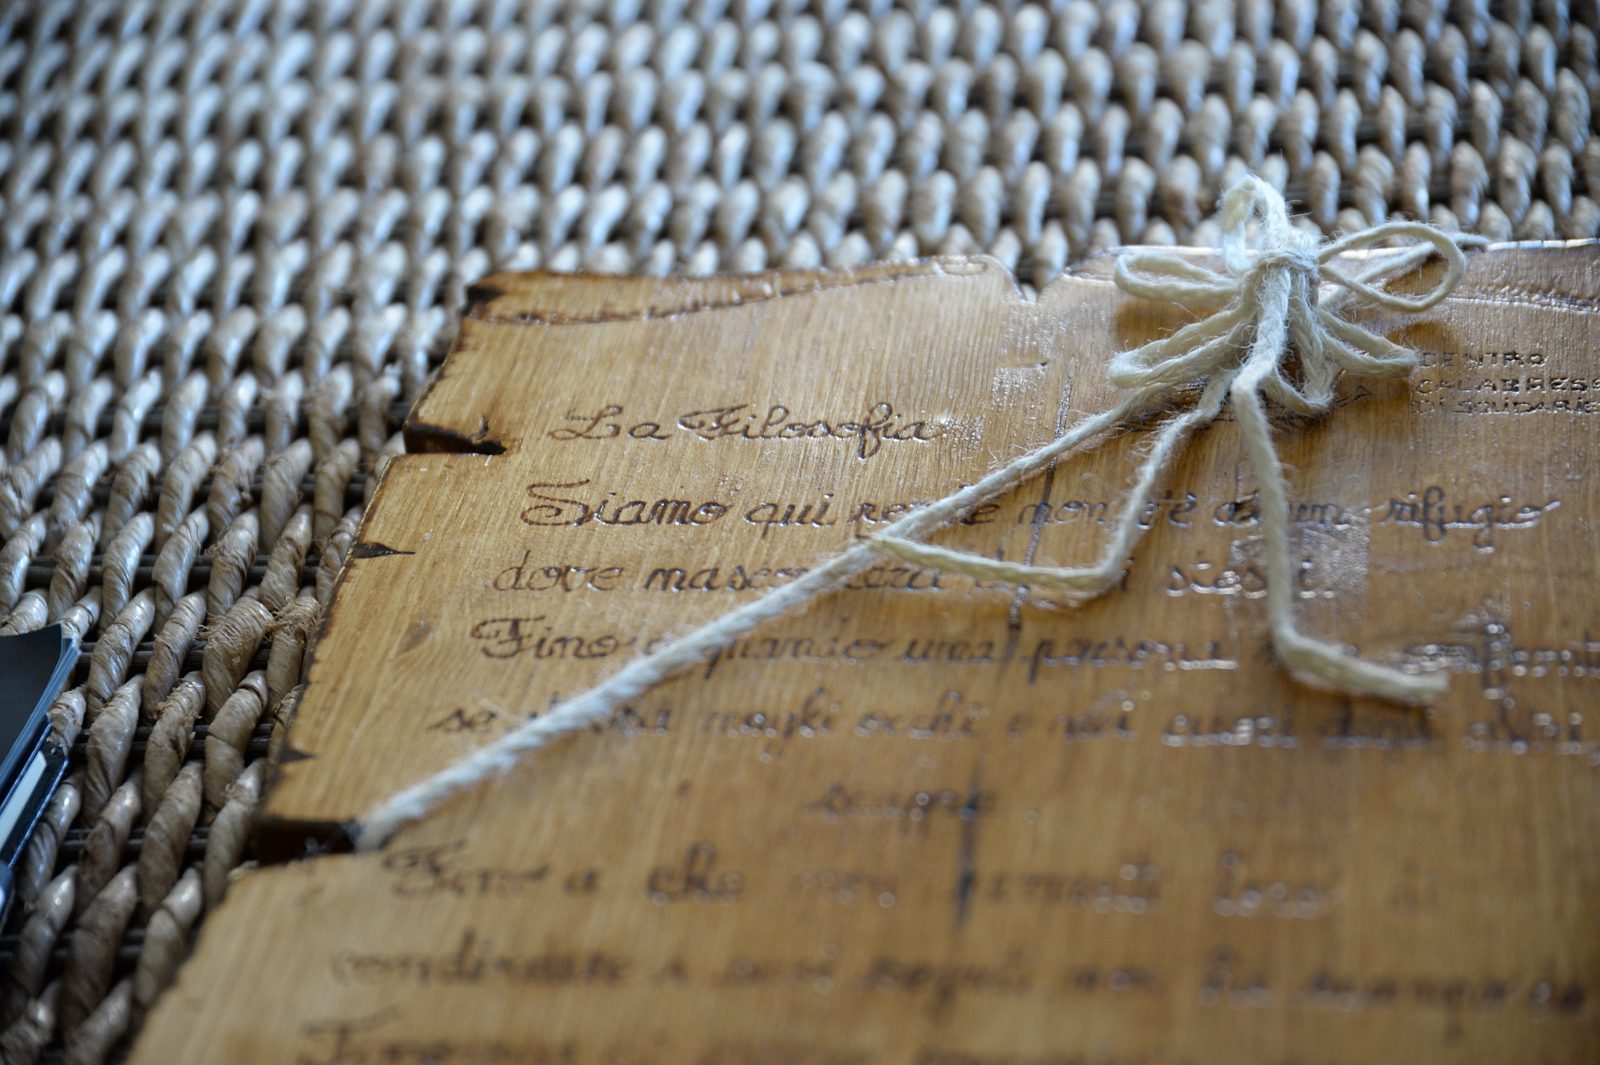 CENTRO
CALABRESE
DI SOLIDARIE
La Filosofia
Siamo qui non c'è alcun rifugio
dove stessi
Fino a quando una persona non
se stessa negli occhi e nei cuori degli altri,
scappa.
Fino a che non permetti loro di
condividere i suoi segreti non ha